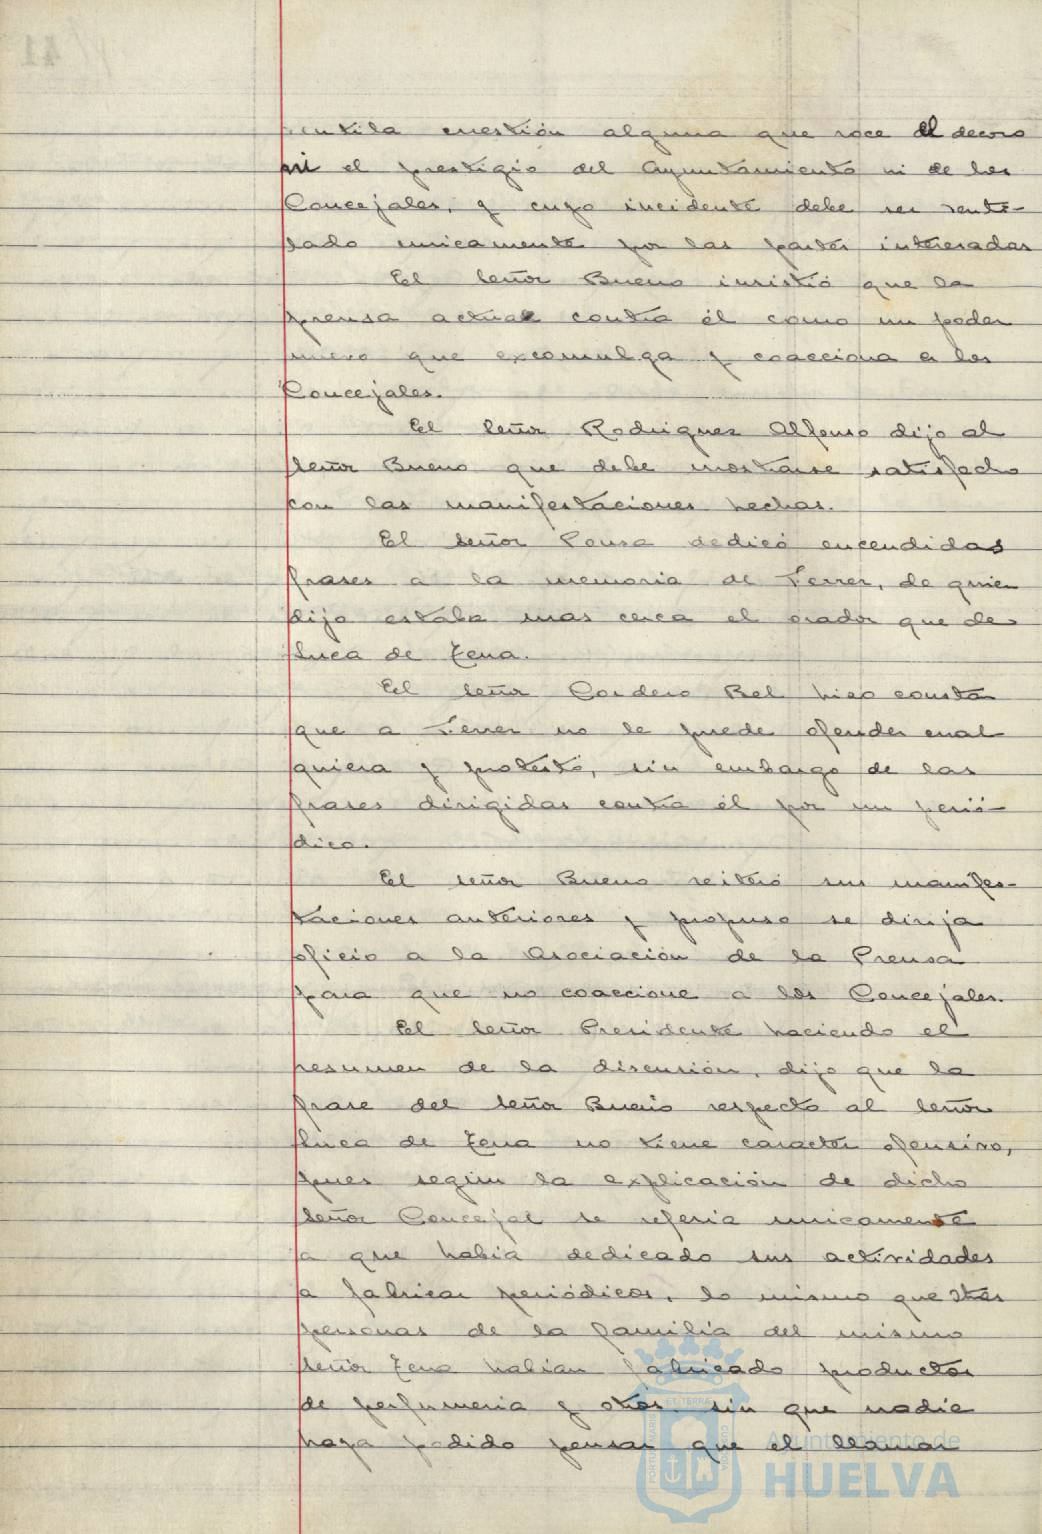 cuestión alguna que roce el decoro
ni el prestigio del Ayuntamiento ni de los
Concejales, y cuyo incidente debe ser venti-
lado unicamente por las partes interesadas
El señor Bueno insistió que la
prensa actual contra él como un poder
nuevo que excomulga y coacciona a los
Concejales.
El señor Rodriguez Alfonso dijo al
señor Bueno que debe mostrarse satisfecho
con las manifestaciones hechas.
El señor Ponce dedicó encendidas
frases a la memoria de Ferrer, de quien
dijo estaba mas cerca el orador que de
Luca de Tena.
El señor Cordero Bel hizo constar
que a Ferrer no le puede ofender cual
quiera y protestó, sin embargo de las
frases dirigidas contra él por un perió-
dico.
El señor Bueno reiteró sus manifes-
taciones anteriores y propuso se dirija
oficio a la Asociación de la Prensa
para que no coaccione a los Concejales.
El señor Presidente haciendo el
resumen de la discusión, dijo que la
frase del señor Bueno respecto al señor
Luca de Tena no tiene caracter ofensivo,
pues según la explicación de dicho
señor Concejal se referia unicamente
a que habia dedicado sus actividades
a fabricar periódicos, lo mismo que otras
personas de la familia del mismo
señor Tena habian fabricado productos
de perfumeria y otros sin que nadie
haya podido pensar que el llamar
Ayuntamiento de
HUELVA